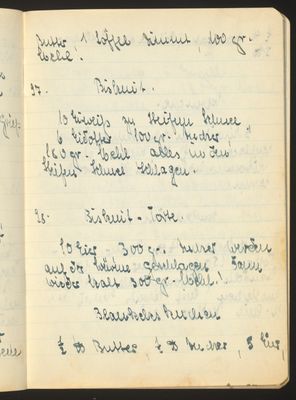 Butter, 1 Löffel Zimmt, 100 gr.
Mehl.
27. Biskuit.
10 Eiweiß zu steifem Schnee,
6 Eidotter, 100 gr. Zucker,
160 gr. Mehl alles in den
steifen Schnee schlagen.
28. Biskuit-Torte.
10 Eier 300 gr. Zucker werden
auf der Wärme geschlagen dann
wieder kalt 300 gr. Mehl!
Kuchen
½ ℔ Butter, ½ ℔ Zucker, 5 Eier,